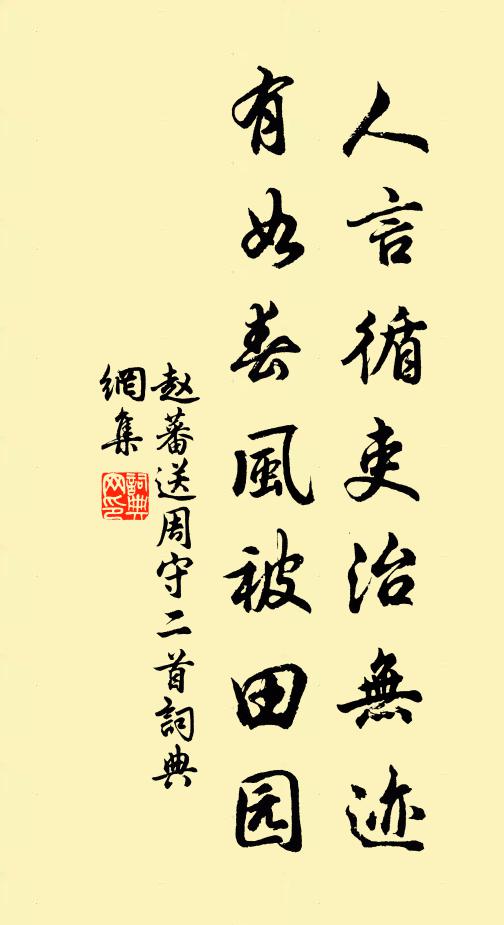 人言循吏治無迹
有如春風被田园
赵蕃送周守二首詞典
網集
詞典
网印